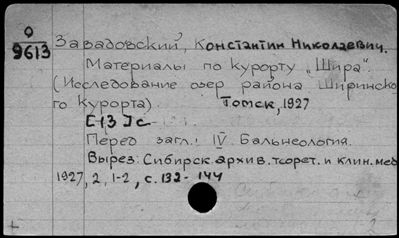 О
9613
Завадовский, Константин Николаевич.
Материалы по курорту „Шира".
(Исследование озер района Ширинско-
го курорта). Томск, 1927
[13] с
Перед загл.: IV. Бальнеология.
Вырез: Сибирск. архив. теорет. и клин. мед.
1927, 2, 1-2, с. 132-144